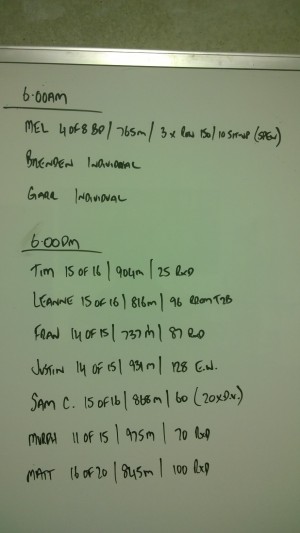 6:00AM
MEL 4 OF 8 BP / 765m / 3 x Row 150 / 10 SIT-UP
BRENDEN INDIVIDUAL
GARR INDIVIDUAL
6:00PM
TIM 15 OF 16 | 904m | 25 RxD
LEANNE 15 OF 16 | 816m | 96 T2B
FRAN 14 OF 15 | 737m | 87 RxD
JUSTIN 14 OF 15 | 931m | 128 E.W.
SAM C. 15 OF 16 | 868m | 60
MURPH 11 OF 15 | 975m | 70 RxD
MATT 16 OF 20 | 845m | 100 RxD